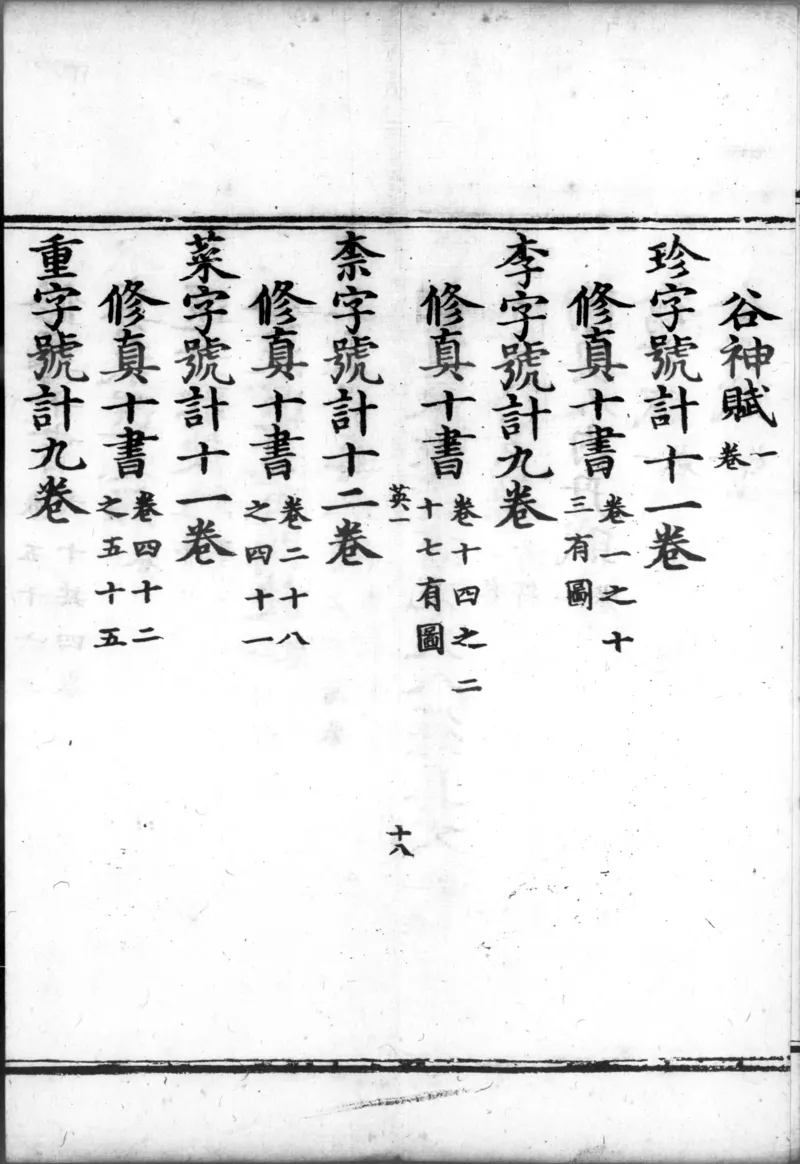 谷神賦一卷
珍字號計十一卷
修真十書卷一之十三有圖
李字號計九卷
修真十書卷十四之二十七有圖
英一
十八
柰字號計十二卷
修真十書卷二十八之四十一
菜字號計十一卷
修真十書卷四十二之五十五
重字號計九卷